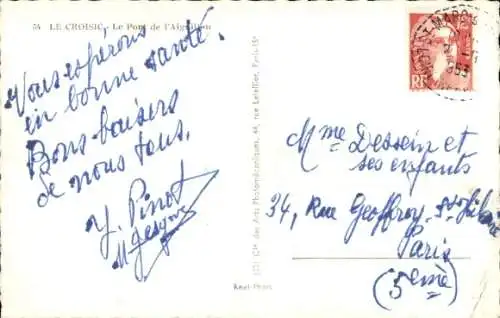 36 LE CROISIC. Le Pont de l'Aiguillon
Vous espérons
en bonne santé.
Bons baisers
de nous tous.
Y. Pinot
Mme Dessein et
ses enfants
34, Rue Geoffroy-St-Hilaire
Paris
(5ème)
Cie des Arts Photomécaniques, 44, rue Letellier, Paris-15e
Réel-Photo
RF